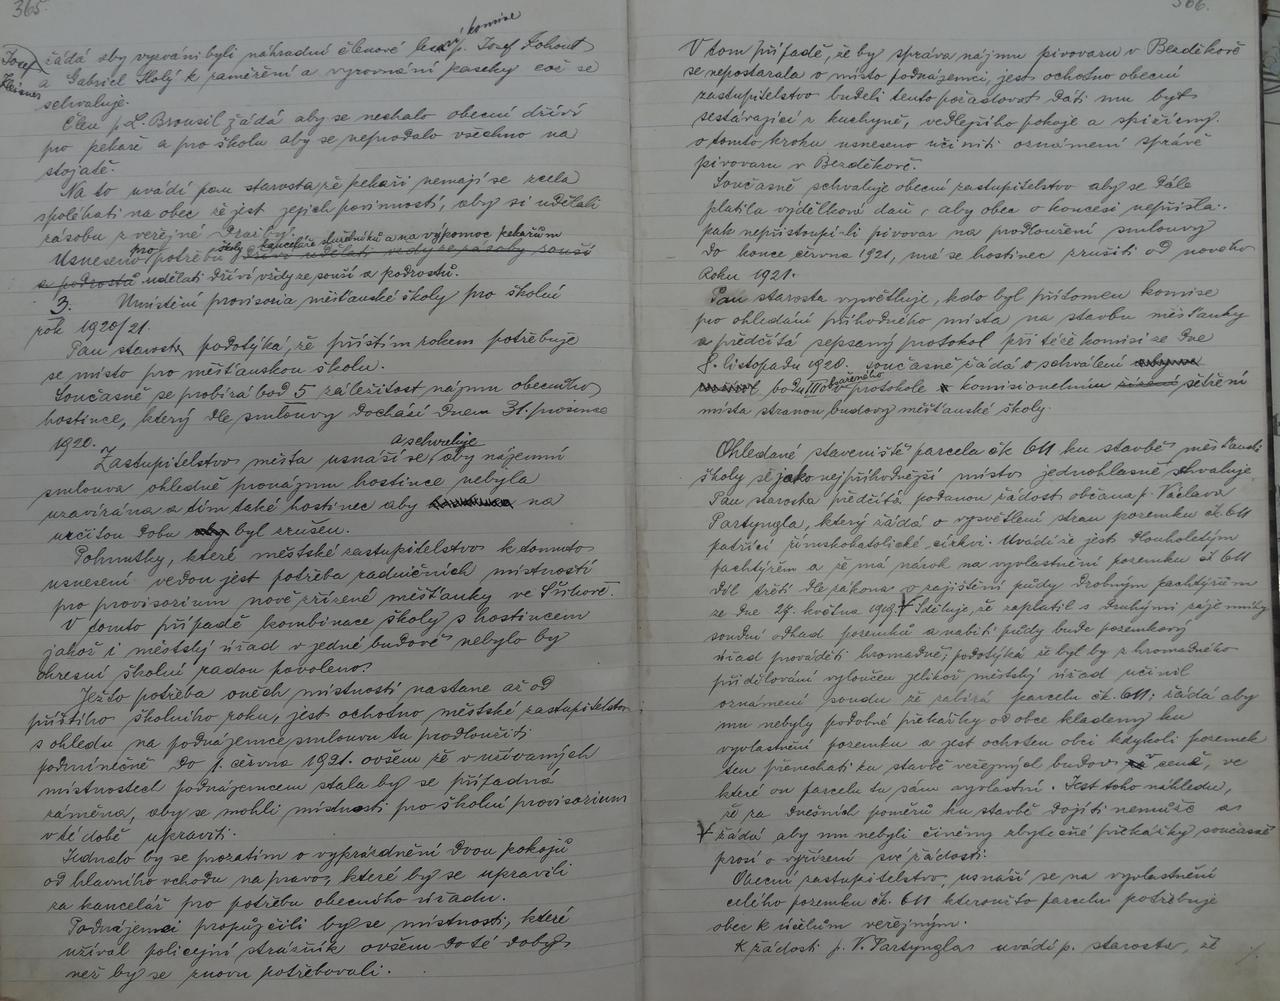 365.
ní komise
Josef žádá aby vyzváni byli náhradní členové les. p. Josef Kohout
Kleisner a Gabriel Holý k zaměření a vyrovnání paseky což se
schvaluje.
Člen p. L. Brousil žádá aby se nechalo obecní dříví
pro pekaře a pro školu aby se neprodalo všechno na
stojatě.
Na to uvádí pan starosta že pekaři nemají se zcela
spoléhati na obec že jest jejich povinností, aby si udělali
zásobu z veřejné Dražby.
školy kanceláře služebníků a na výpomoc pekařům
Usneseno pro potřebu dříví udělati vždy ze zásoby souší
a podrostů udělati dříví vždy ze souší a podrostů.
3. Umístění provisoria měšťanské školy pro školní
rok 1920/21.
Pan starosta podotýká, že příštím rokem potřebuje
se místo pro měšťanskou školu.
Současně se probírá bod 5 záležitost nájmu obecního
hostince, který dle smlouvy Dochází Dnem 31. prosince
1920.
a schvaluje
Zastupitelstvo města usnáší se, aby nájemní
smlouva ohledně pronájmu hostince nebyla
uzavírána a tím také hostinec aby na
určitou Dobu aby byl zrušen.
Pohnutky, které městské zastupitelstvo k tomuto
usnesení vedou jest potřeba radničních místností
pro provisorium nově zřízené měšťanky ve Sušhově.
V tomto případě kombinace školy s hostincem
jakož i městský úřad v jedné budově nebylo by
okresní školní radou povoleno.
Ježto potřeba oněch místností nastane až od
příštího školního roku, jest ochotno městské zastupitelstvo
s ohledu na podnájemce smlouvu tu prodloužiti
podmínečně do 1. června 1921. ovšem že v užívaných
místnostech podnájemcem stala by se případná
záměna, aby se mohli místnosti pro školní provisorium
v té době upraviti.
Jednalo by se prozatím o vyprázdnění dvou pokojů
od hlavního vchodu na pravo, které by se upravili
za kancelář pro potřebu obecního úřadu.
Podnájemci propůjčili by se místnosti, které
užíval policejní strážník ovšem do té doby,
než by se znovu potřebovali.
366.
V tom případě, že by správa nájmu pivovaru v Bezděkově
se nepostarala o místo podnájemci, jest ochotno obecní
zastupitelstvo budeli tento požadovat dáti mu byt
sestávající z kuchyně, vedlejšího pokoje a spižírny.
o tomto kroku usneseno učiniti oznámení správě
pivovaru v Bezděkově.
Současně schvaluje obecní zastupitelstvo aby se dále
platila výdělková daň, aby obec o koncesi nepřišla.
pak nepřistoupí-li pivovar na prodloužení smlouvy
do konce června 1921, má se hostinec zrušiti od nového
Roku 1921.
Pan starosta vysvětluje, kdo byl přítomen komise
pro ohledání příhodného místa na stavbu měšťanky
a předčítá sepsaný protokol při téže komisi ze dne
8. listopadu 1920. současně žádá o schválení
bodu III v protokole komisionelním šetření
místa stranou budovy měšťanské školy.
Ohledané staveniště parcela čk 611 ku stavbě měšťanské
školy se jako nejpříhodnější místo jednohlasně schvaluje
Pan starosta předčítá podanou žádost občana p. Václava
Partyngla, který žádá o vysvětlení stran pozemku čk. 611
patřící římskokatolické církvi. Uvádí že jest dlouholetým
pachtýřem a že má nárok na vyvlastnění pozemku čk 611
díl třetí dle zákona o zajištění půdy drobným pachtýřům
ze dne 27. května 1919. Sděluje, že zaplatil s druhými zájemníky
soudní odhad pozemků a nabití půdy bude pozemkový
úřad prováděti hromadně; podotýká že byl by z hromadného
přidělování vyloučen jelikož městský úřad učinil
oznámení soudu že zabírá parcelu čk. 611; žádá aby
mu nebyly podobné překážky od obce kladeny ku
vyvlastnění pozemku a jest ochoten obci kdykoli pozemek
ten přenechati ku stavbě veřejných budov za cenu, ve
které on parcelu tu sám vyvlastní. Jest toho náhledu,
že za dnešních poměrů ku stavbě dojíti nemůže a
žádá aby mu nebyli činěny zbytečné překážky současně
prosí o vyřízení své žádosti.
Obecní zastupitelstvo, usnáší se na vyvlastnění
celého pozemku čk. 611 kteroužto parcelu potřebuje
obec k účelům veřejným.
K žádosti p. V. Partyngla uvádí p. starosta, že